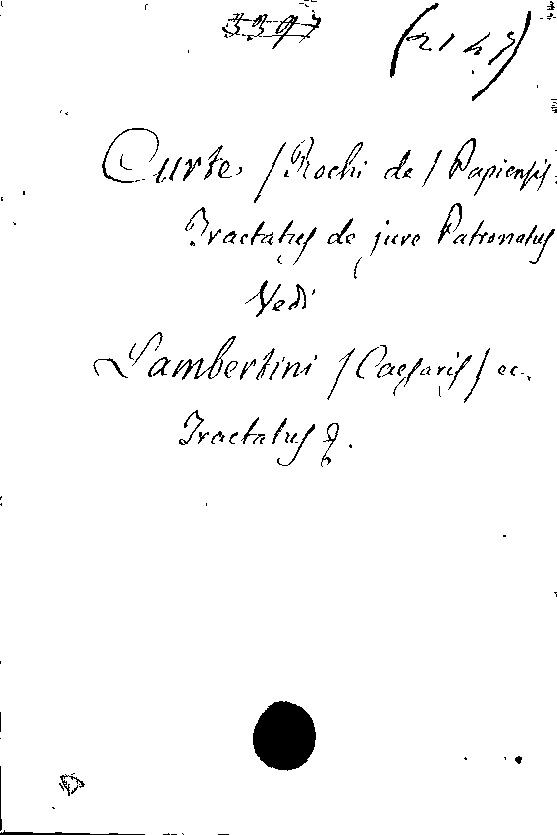 3397 (2145)
Curte, /Rochi de/ Papiensis.
Tractatus de jure Patronatus
Vedi
Lambertini /Caesaris/ ec.
Tractatus